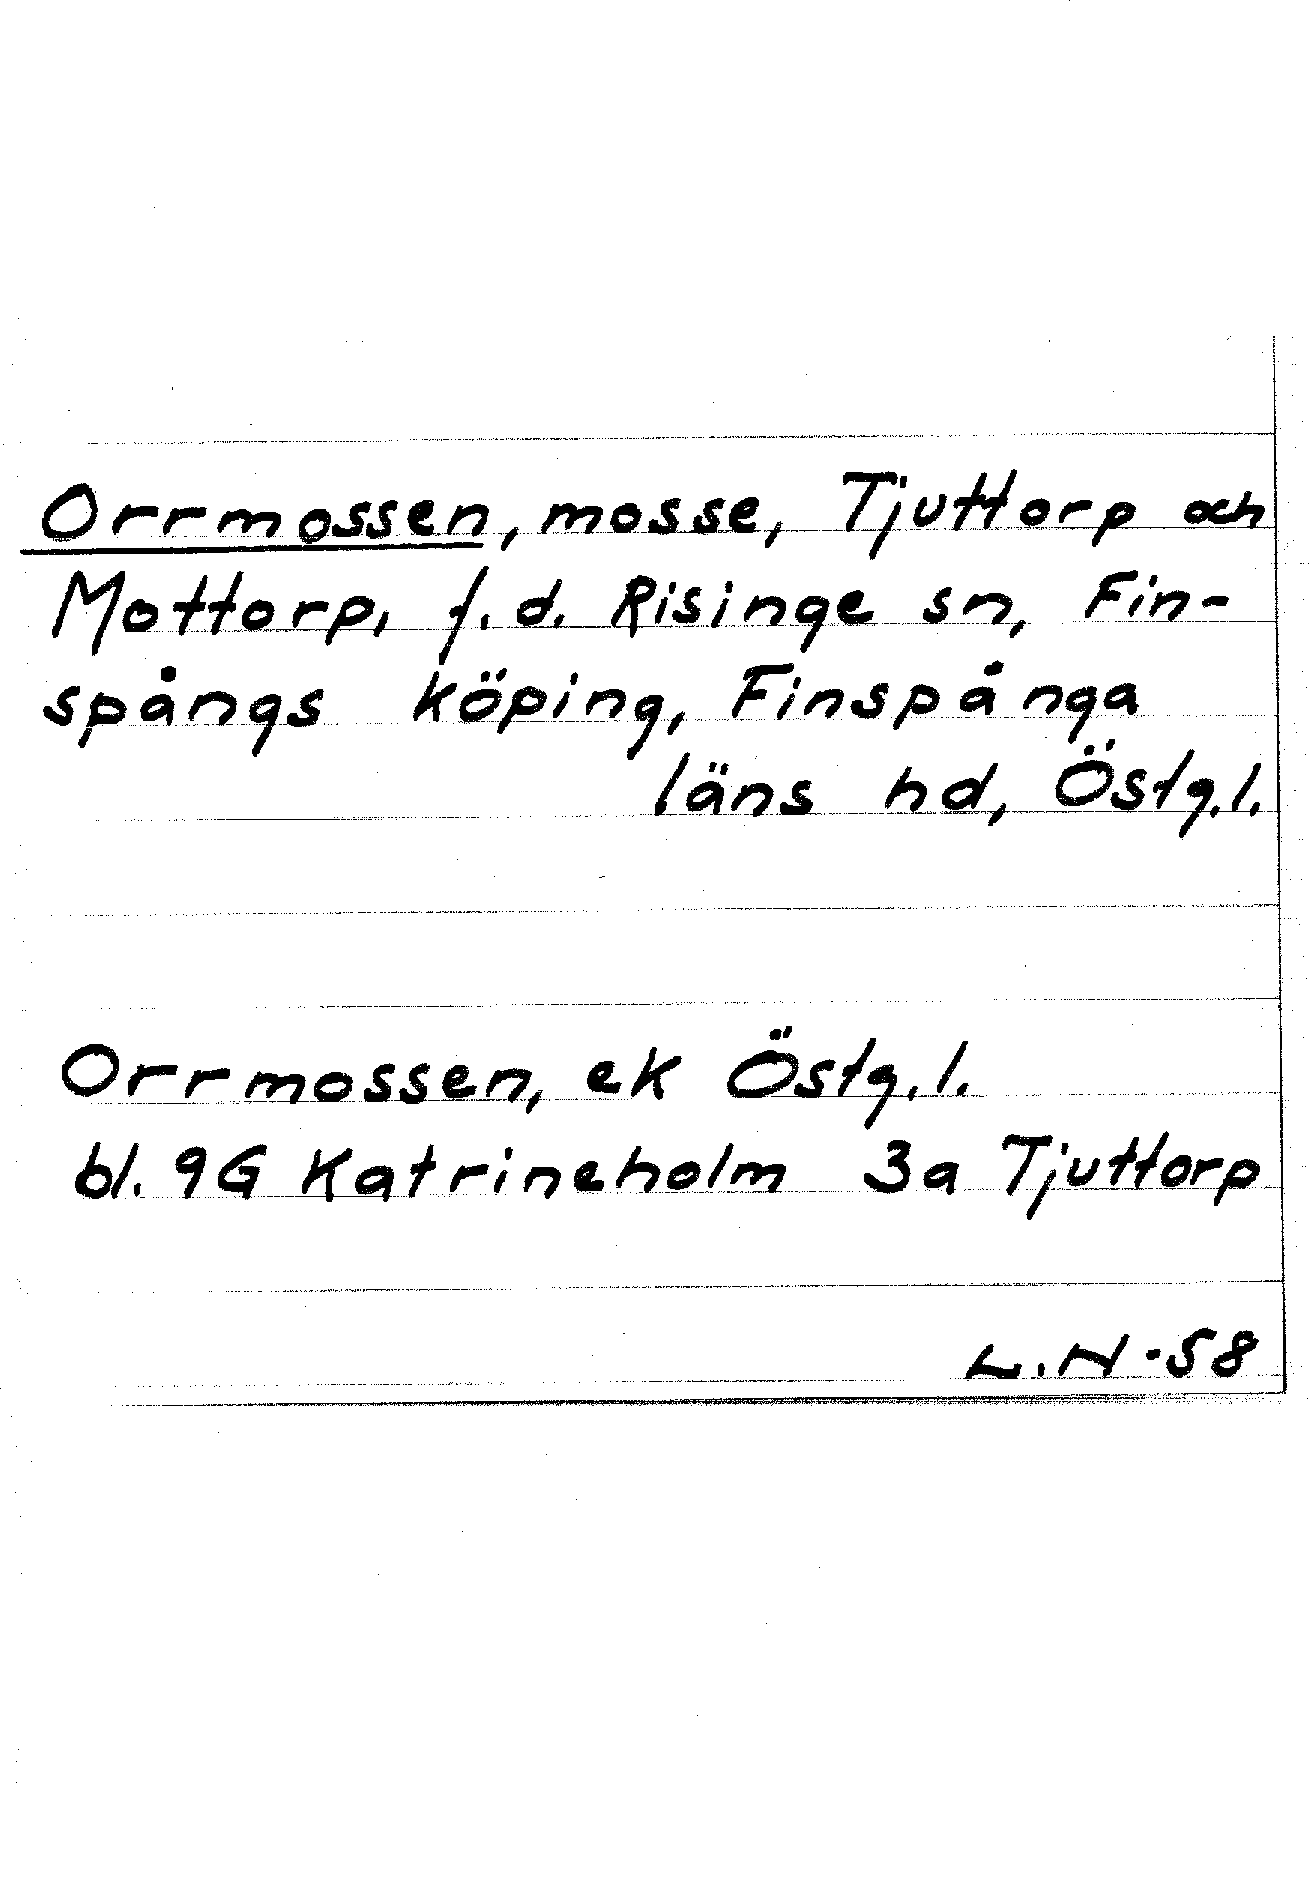 Orrmossen, mosse, Tjuttorp och
Mottorp, f.d. Risinge sn, Fin-
spångs köping, Finspånga
läns hd, Östg.l.
Orrmossen, ek Östg.l.
bl. 9G Katrineholm 3a Tjuttorp
L.N-58